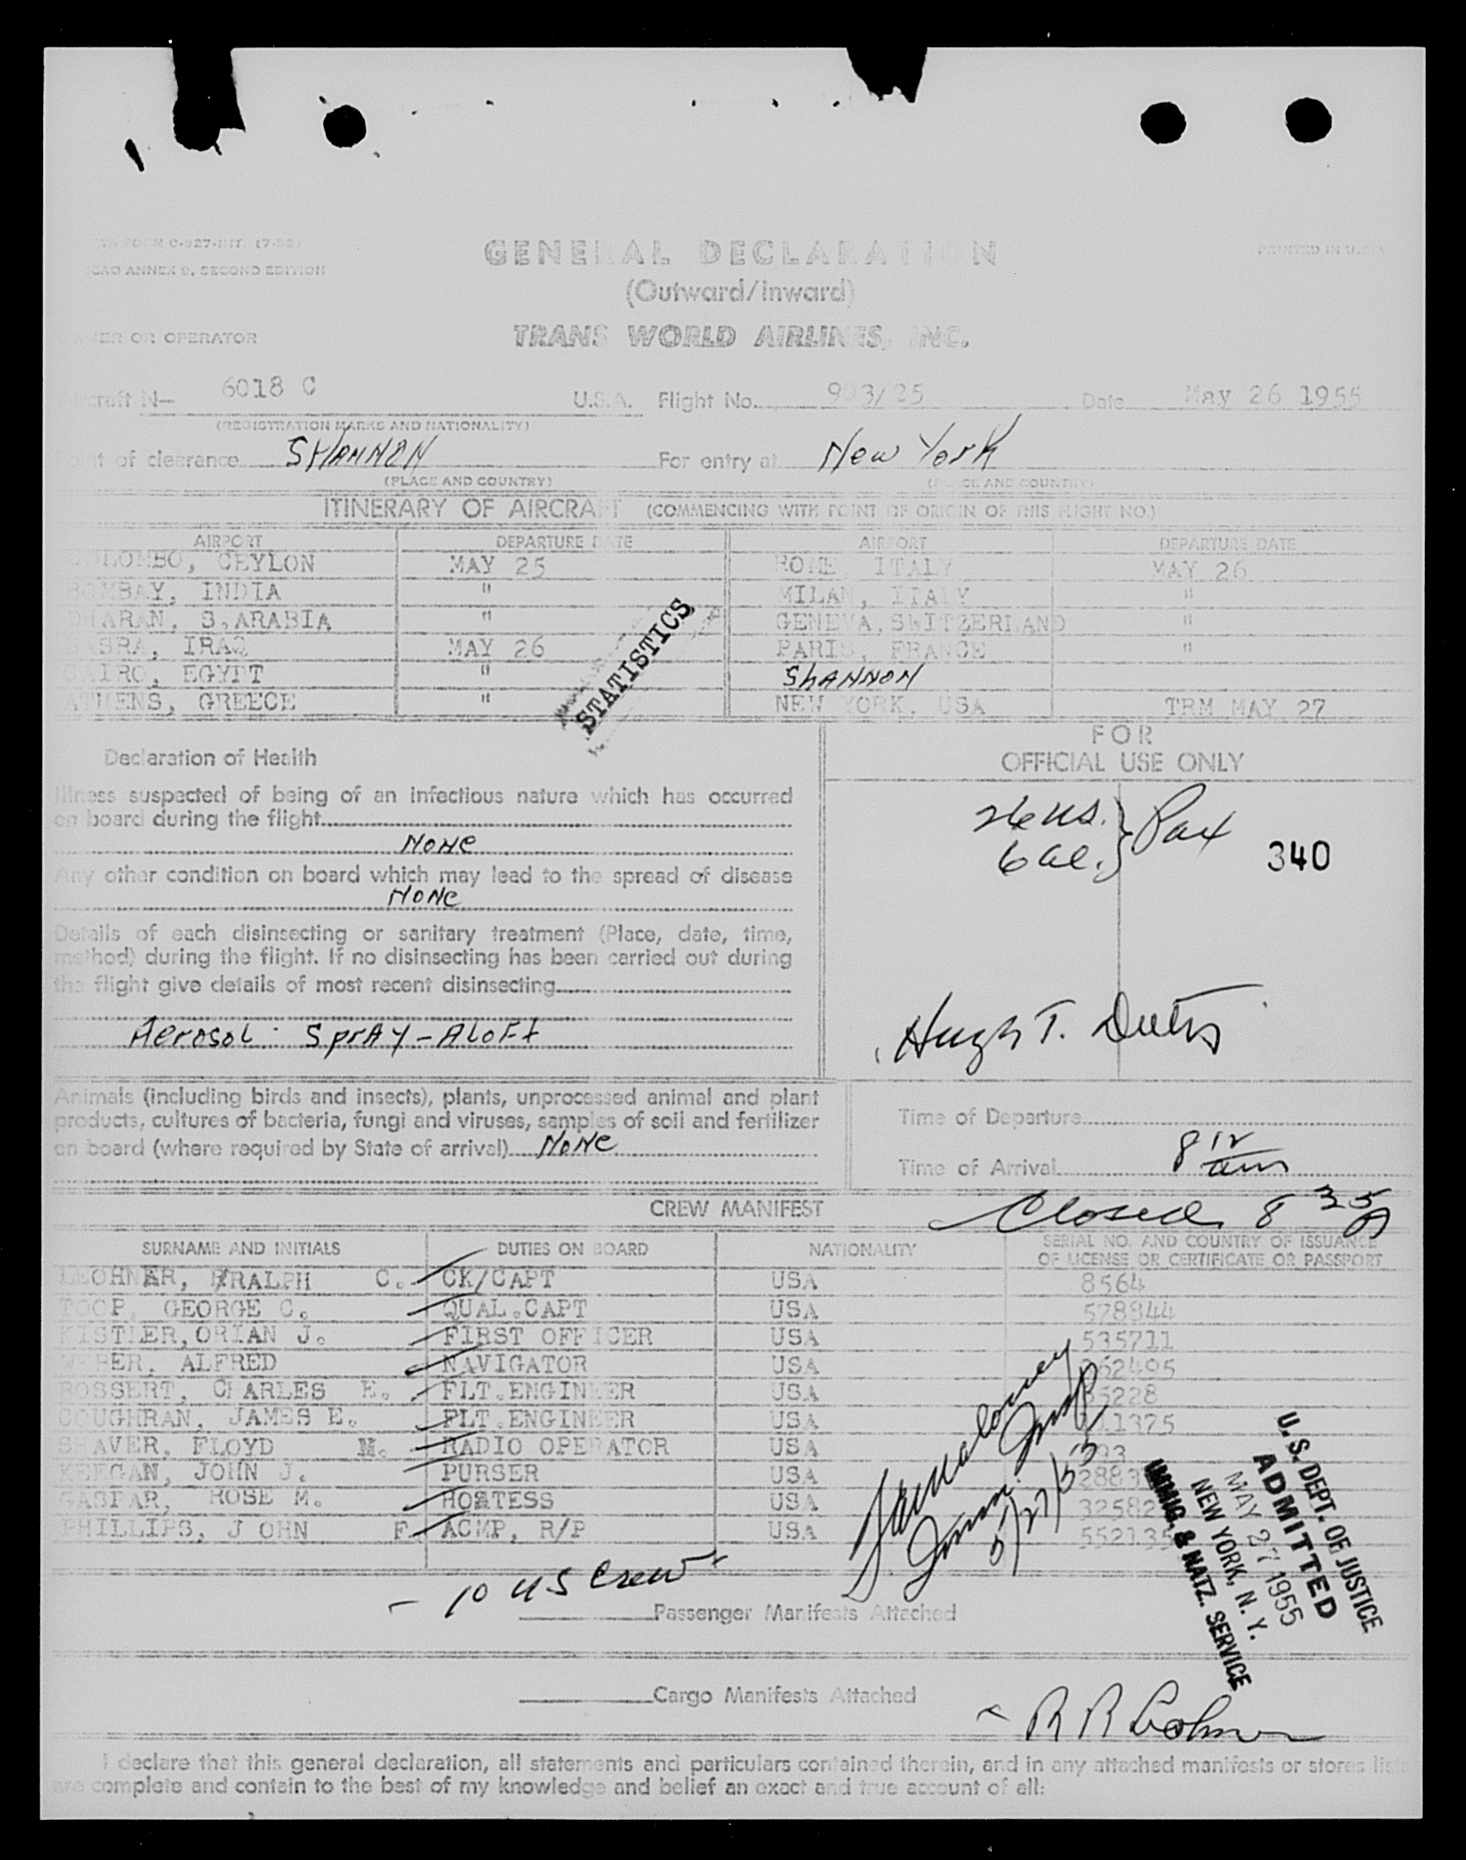 FORM C-927-INT (7-52)
ICAO ANNEX 9, SECOND EDITION
GENERAL DECLARATION
PRINTED IN U.S.A.
(Outward/Inward)
OWNER OR OPERATOR TRANS WORLD AIRLINES, INC.
Aircraft N— 6018 C U.S.A. Flight No. 903/25 Date May 26 1955
(REGISTRATION MARKS AND NATIONALITY)
Point of clearance SHANNON For entry at New York
(PLACE AND COUNTRY) (PLACE AND COUNTRY)
ITINERARY OF AIRCRAFT (COMMENCING WITH POINT OF ORIGIN OF THIS FLIGHT NO.)
AIRPORT DEPARTURE DATE AIRPORT DEPARTURE DATE
COLOMBO, CEYLON MAY 25 ROME ITALY MAY 26
BOMBAY, INDIA " MILAN, ITALY "
DHARAN, S.ARABIA " GENEVA, SWITZERLAND "
BASRA, IRAQ MAY 26 PARIS, FRANCE "
CAIRO, EGYPT " SHANNON
ATHENS, GREECE " NEW YORK, USA TRM MAY 27
STATISTICS
FOR
OFFICIAL USE ONLY
Declaration of Health
Illness suspected of being of an infectious nature which has occurred
on board during the flight
None
Any other condition on board which may lead to the spread of disease
None
Details of each disinsecting or sanitary treatment (Place, date, time,
method) during the flight. If no disinsecting has been carried out during
the flight give details of most recent disinsecting
Aerosol Spray-Aloft
26 US. } Pax
6 al.
340
Hugh T.
Animals (including birds and insects), plants, unprocessed animal and plant
products, cultures of bacteria, fungi and viruses, samples of soil and fertilizer
on board (where required by State of arrival) None
Time of Departure
Time of Arrival 8 12 am
CREW MANIFEST
Closed 8 35 A
SURNAME AND INITIALS DUTIES ON BOARD NATIONALITY SERIAL NO. AND COUNTRY OF ISSUANCE
OF LICENSE OR CERTIFICATE OR PASSPORT
RALPH C. CK/CAPT USA 8564
TOOP, GEORGE C. QUAL.CAPT USA 578844
KISTLER, ORIAN J. FIRST OFFICER USA 535711
WEBER, ALFRED NAVIGATOR USA 62495
BOSSERT, CHARLES E. FLT.ENGINEER USA 5228
COUGHRAN, JAMES E. FLT.ENGINEER USA 1375
SHAVER, FLOYD M. RADIO OPERATOR USA 93
KEEGAN, JOHN J. PURSER USA 2883
GASPAR, ROSE M. HOSTESS USA 32582
PHILLIPS, JOHN F. ACMP, R/P USA 55213
5/27/55
U.S. DEPT. OF JUSTICE
ADMITTED
MAY 27 1955
NEW YORK, N. Y.
IMMIG. & NATZ. SERVICE
— 10 US Crew
Passenger Manifests Attached
Cargo Manifests Attached
I declare that this general declaration, all statements and particulars contained therein, and in any attached manifests or stores list
are complete and contain to the best of my knowledge and belief an exact and true account of all: